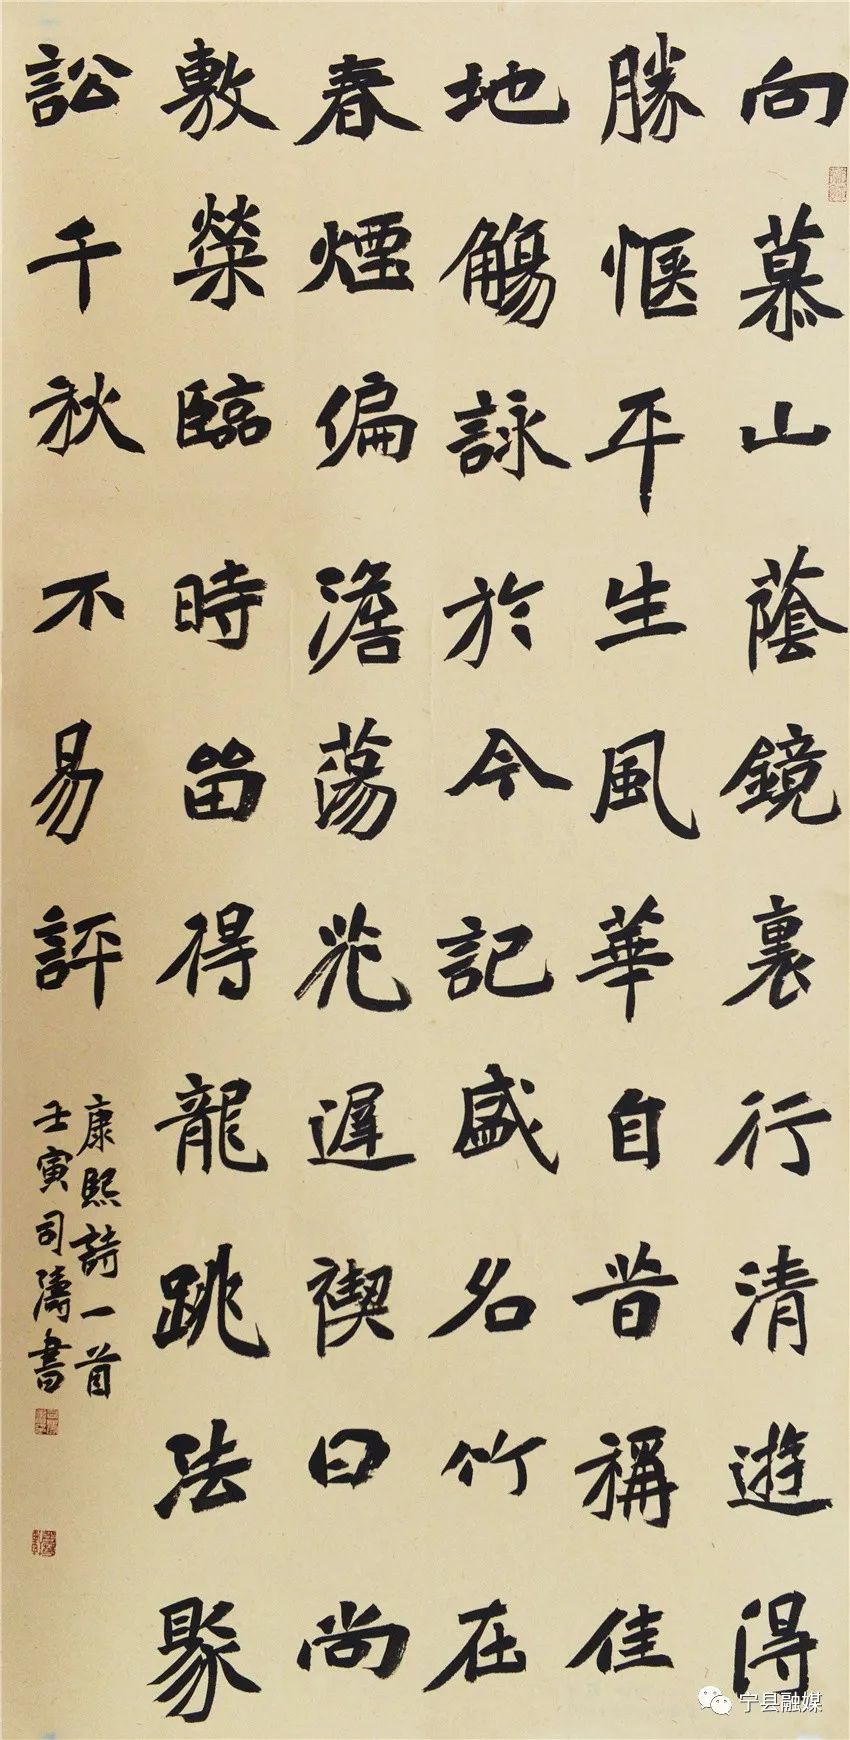 向慕山蔭鏡裏行清遊得
勝愜平生風華自昔稱佳
地觴詠於今記盛名竹在
春煙偏澹蕩花遲禊日尚
敷榮臨時留得龍跳法聚
訟千秋不易評
康熙詩一首
壬寅司濤書
宁县融媒